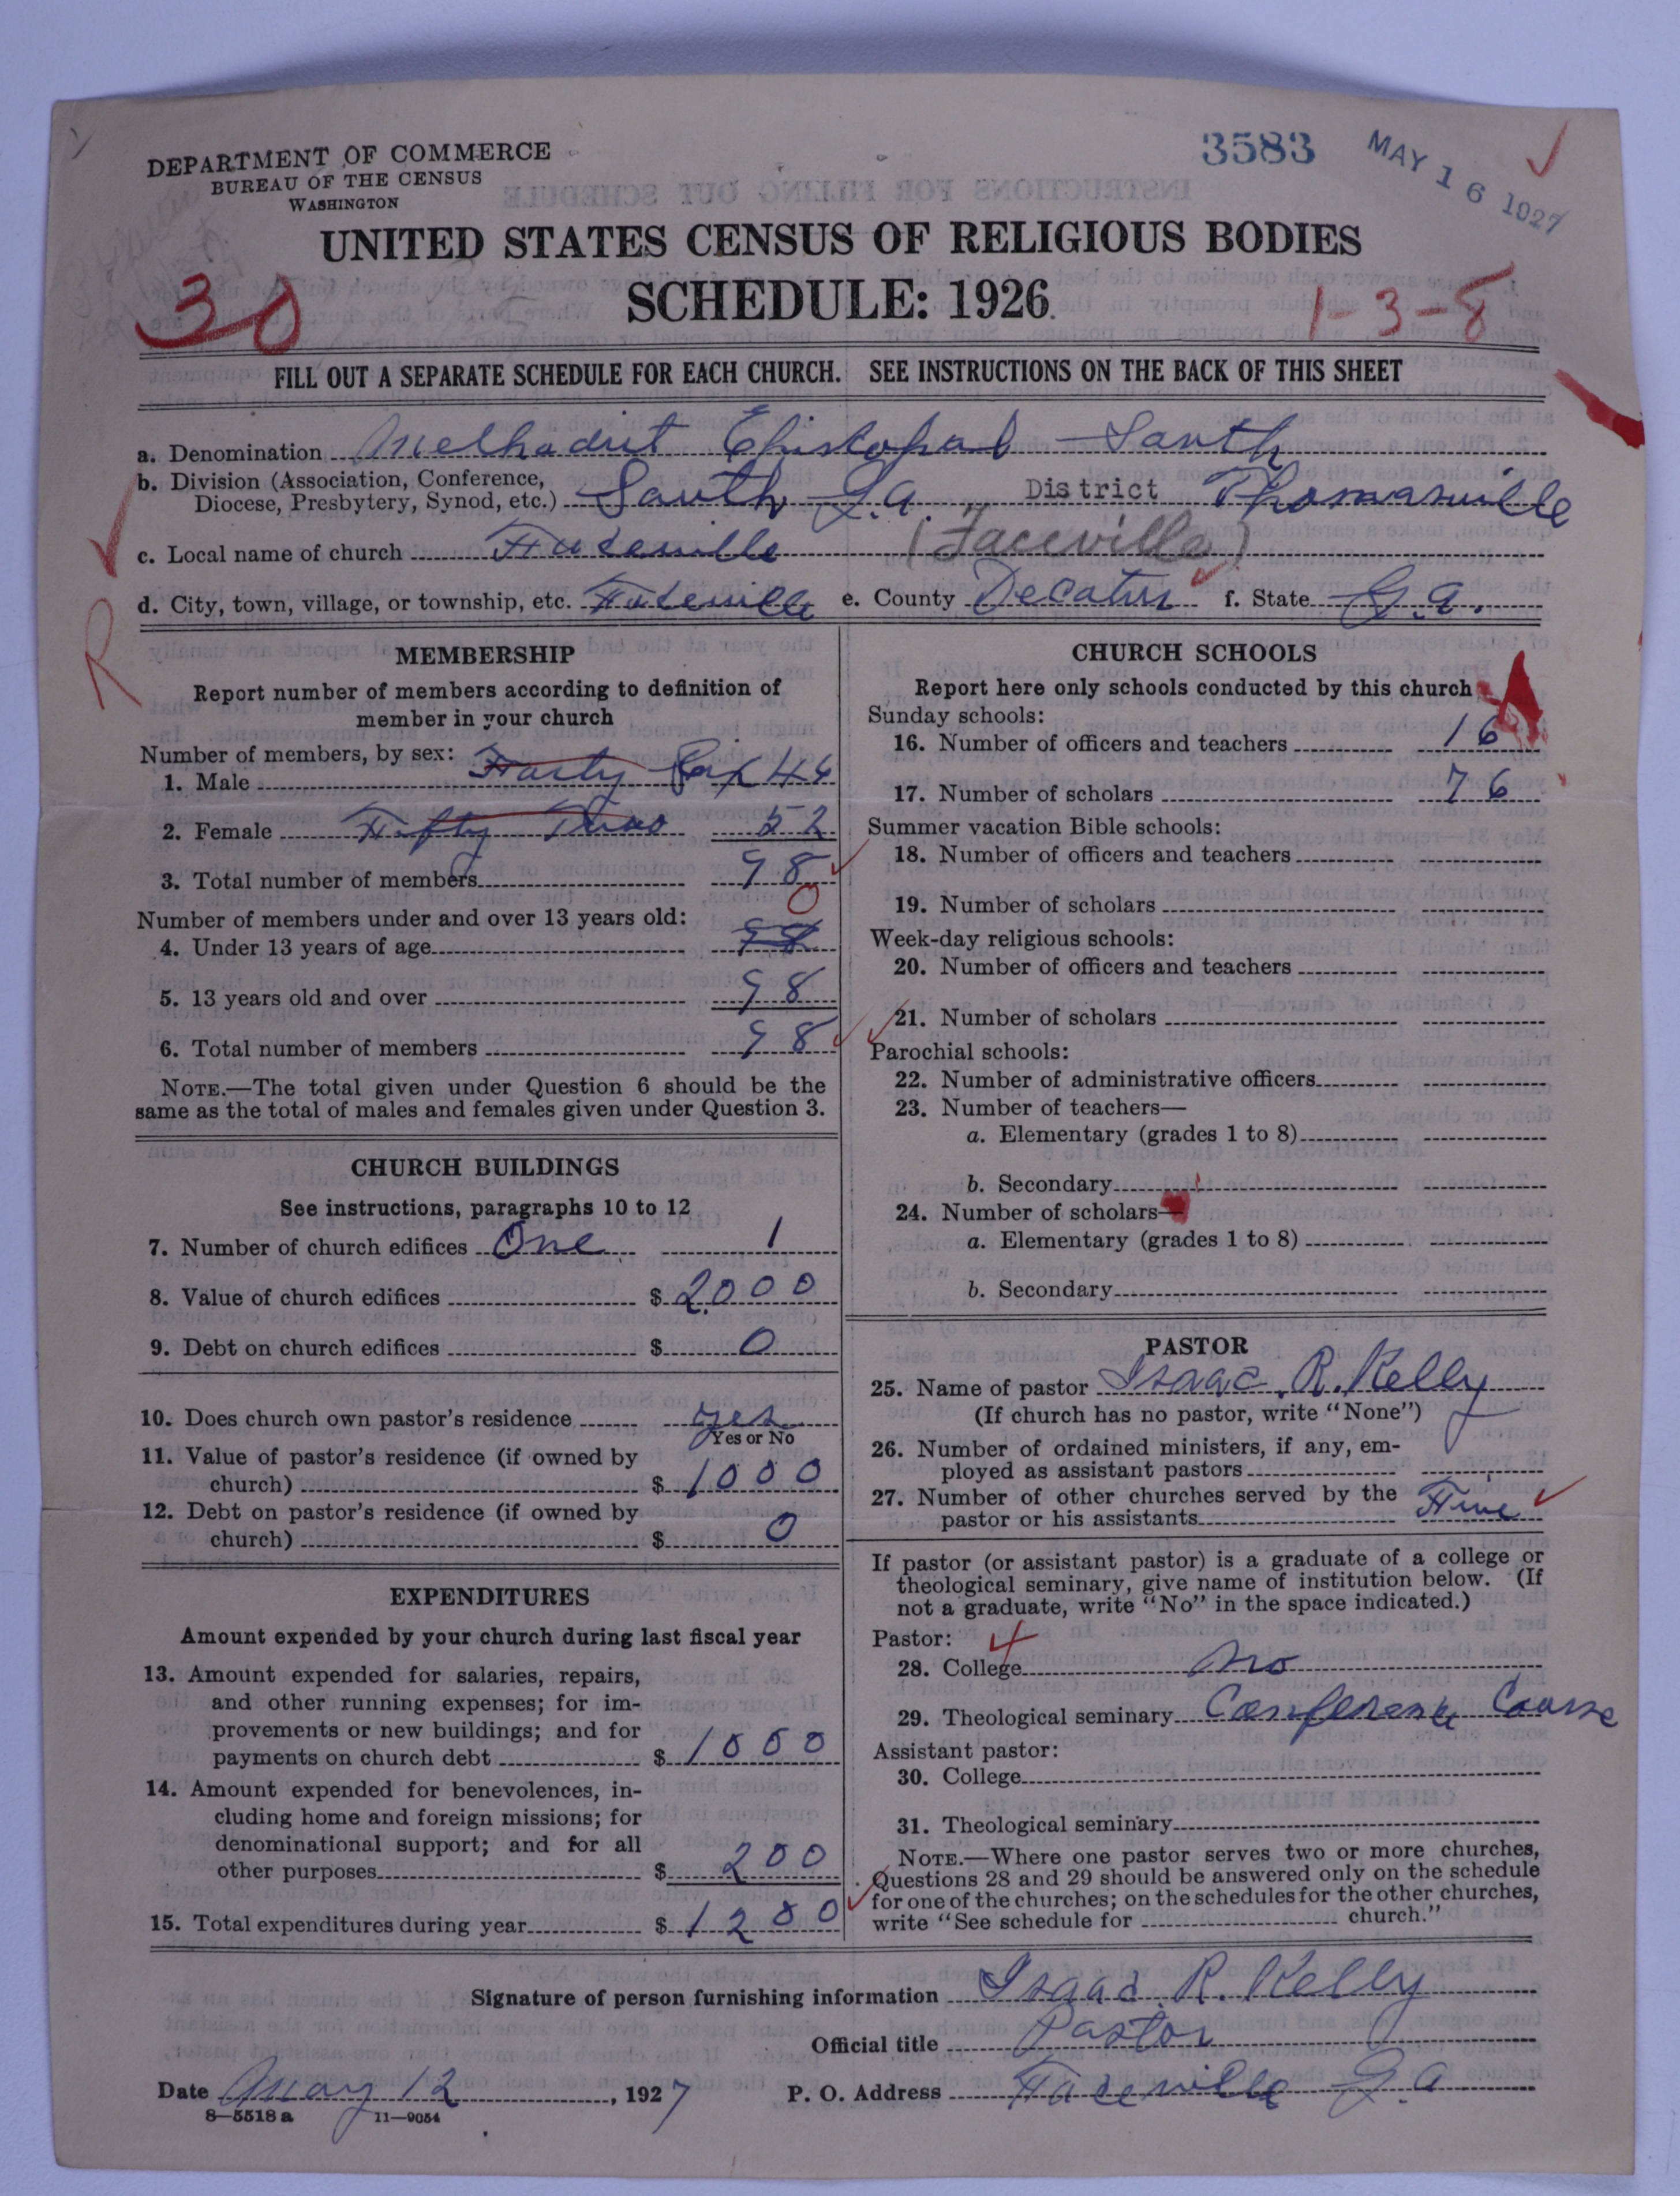 3583
MAY 16 1927
DEPARTMENT OF COMMERCE
BUREAU OF THE CENSUS
WASHINGTON
UNITED STATES CENSUS OF RELIGIOUS BODIES
30
SCHEDULE: 1926.
1-3-8
FILL OUT A SEPARATE SCHEDULE FOR EACH CHURCH. SEE INSTRUCTIONS ON THE BACK OF THIS SHEET
a. Denomination Methodist Episcopal South
b. Division (Association, Conference,
Diocese, Presbytery, Synod, etc.) South Ga. District Thomasville
c. Local name of church Faceville (Faceville)
d. City, town, village, or township, etc. Faceville e. County Decatur f. State Ga.
R
MEMBERSHIP
Report number of members according to definition of
member in your church
Number of members, by sex:
1. Male Forty Six 46
2. Female Fifty Two 52
3. Total number of members 98
Number of members under and over 13 years old: 0
4. Under 13 years of age 98
5. 13 years old and over 98
6. Total number of members 98
NOTE.—The total given under Question 6 should be the
same as the total of males and females given under Question 3.
CHURCH BUILDINGS
See instructions, paragraphs 10 to 12
7. Number of church edifices One 1
8. Value of church edifices $ 2000
9. Debt on church edifices $ 0
10. Does church own pastor's residence yes
Yes or No
11. Value of pastor's residence (if owned by
church) $ 1000
12. Debt on pastor's residence (if owned by
church) $ 0
EXPENDITURES
Amount expended by your church during last fiscal year
13. Amount expended for salaries, repairs,
and other running expenses; for im-
provements or new buildings; and for
payments on church debt $ 1000
14. Amount expended for benevolences, in-
cluding home and foreign missions; for
denominational support; and for all
other purposes $ 200
15. Total expenditures during year $ 1200
CHURCH SCHOOLS
Report here only schools conducted by this church
Sunday schools:
16. Number of officers and teachers 16
17. Number of scholars 76
Summer vacation Bible schools:
18. Number of officers and teachers
19. Number of scholars
Week-day religious schools:
20. Number of officers and teachers
21. Number of scholars
Parochial schools:
22. Number of administrative officers
23. Number of teachers—
a. Elementary (grades 1 to 8)
b. Secondary
24. Number of scholars—
a. Elementary (grades 1 to 8)
b. Secondary
PASTOR
25. Name of pastor Isaac R. Kelly
(If church has no pastor, write "None")
26. Number of ordained ministers, if any, em-
ployed as assistant pastors
27. Number of other churches served by the
pastor or his assistants Five
If pastor (or assistant pastor) is a graduate of a college or
theological seminary, give name of institution below. (If
not a graduate, write "No" in the space indicated.)
Pastor:
28. College no
29. Theological seminary Conference Course
Assistant pastor:
30. College
31. Theological seminary
NOTE.—Where one pastor serves two or more churches,
Questions 28 and 29 should be answered only on the schedule
for one of the churches; on the schedules for the other churches,
write "See schedule for church."
Signature of person furnishing information Isaac R. Kelly
Official title Pastor
Date May 12, 1927 P. O. Address Faceville Ga
8—5518 a 11—9054